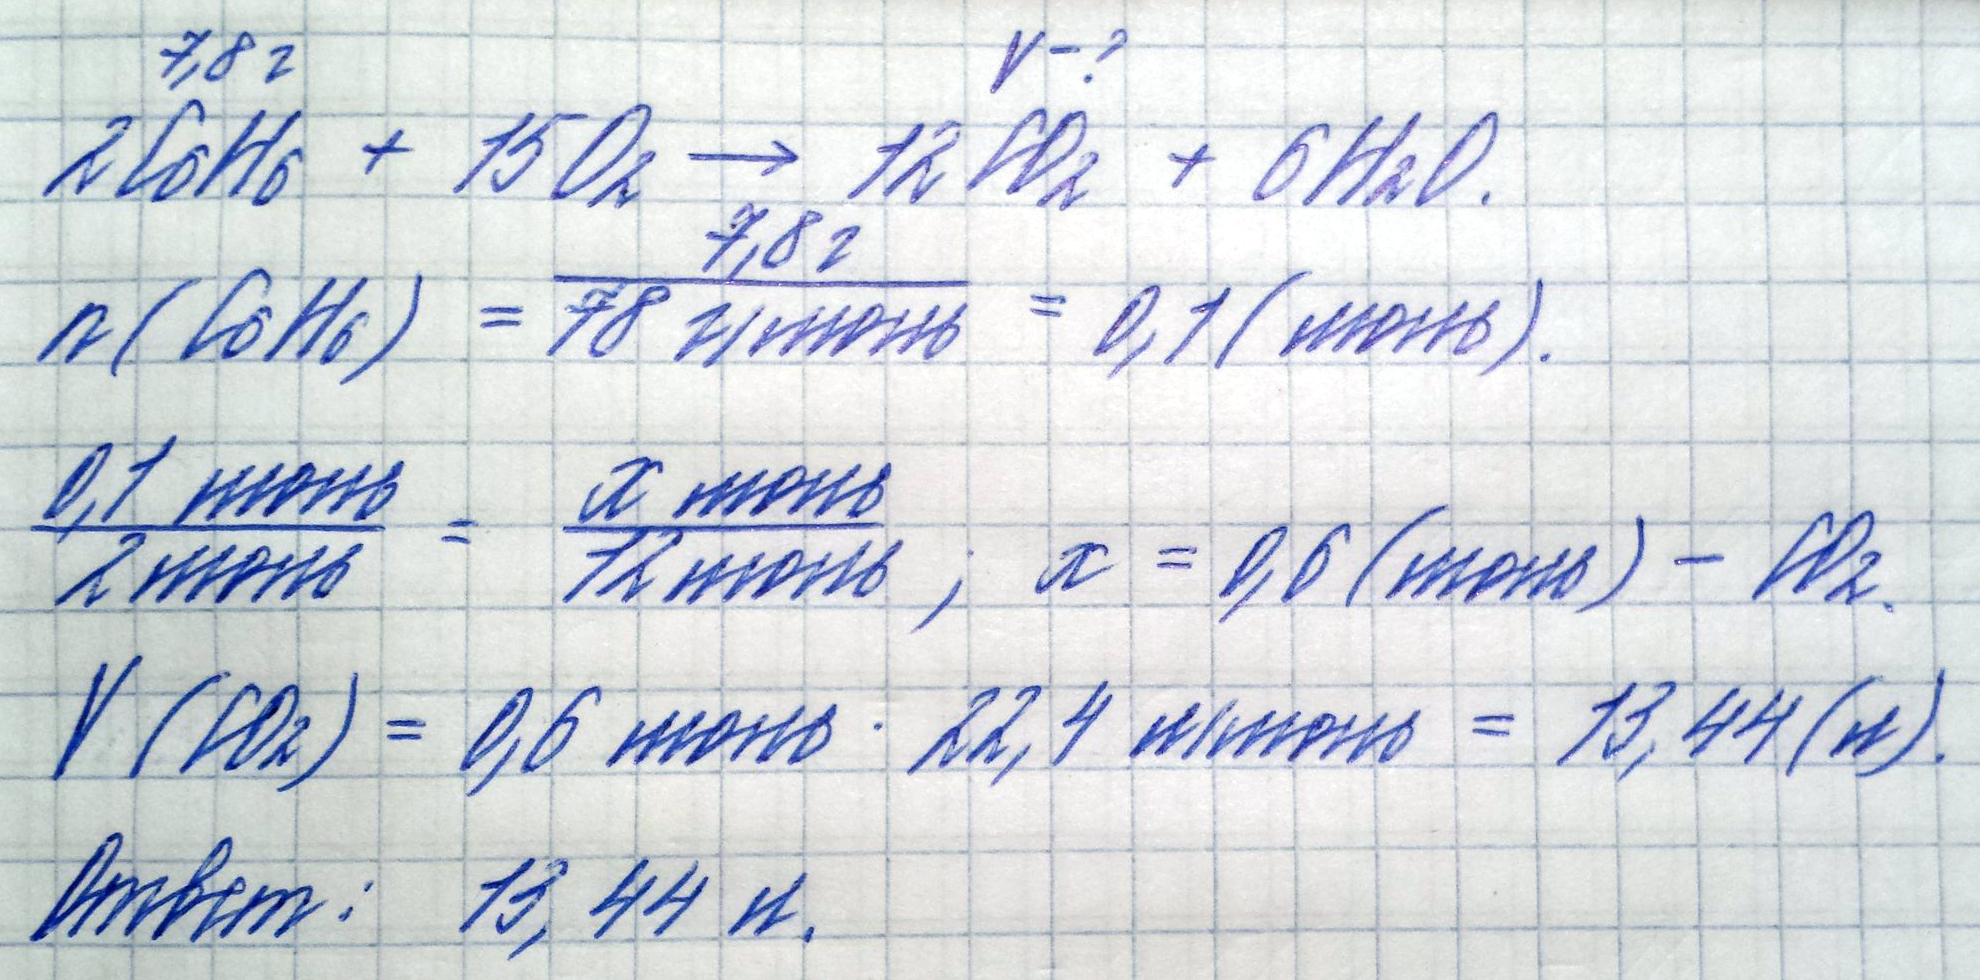 7,8 г V-?
2C₆H₆ + 15O₂ → 12CO₂ + 6H₂O.
n(C₆H₆) = 7,8 г / 78 г/моль = 0,1 (моль).
0,1 моль / 2 моль = x моль / 12 моль ; x = 0,6 (моль) - CO₂.
V (CO₂) = 0,6 моль · 22,4 л/моль = 13,44 (л).
Ответ: 13,44 л.